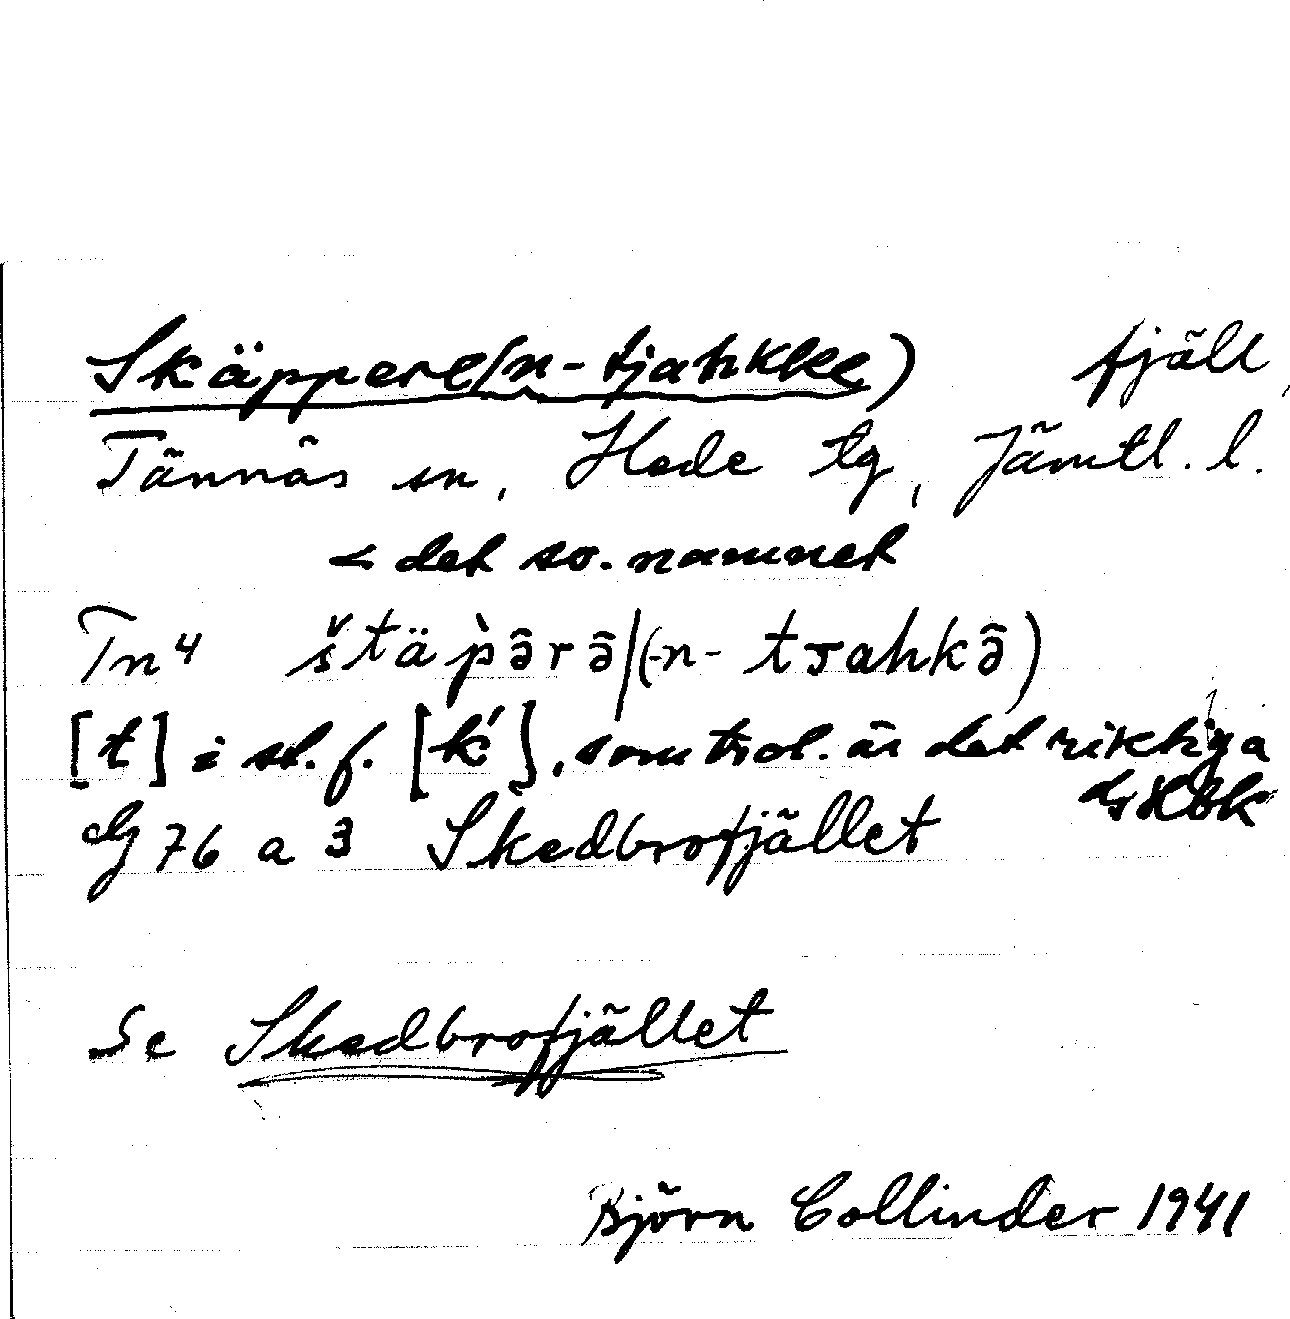 Skäppere(n-tjahkke) fjäll,
Tännäs sn, Hede tg, Jämtl. l.
< det sv. namnet
Tn4 štäp̀ə̂rə̂/(-n- tsahkə̂)
[t] i st. f. [k̕], som trol. är det riktiga
G 76 a 3 Skedbrofjället
Se Skedbrofjället
Björn Collinder 1941